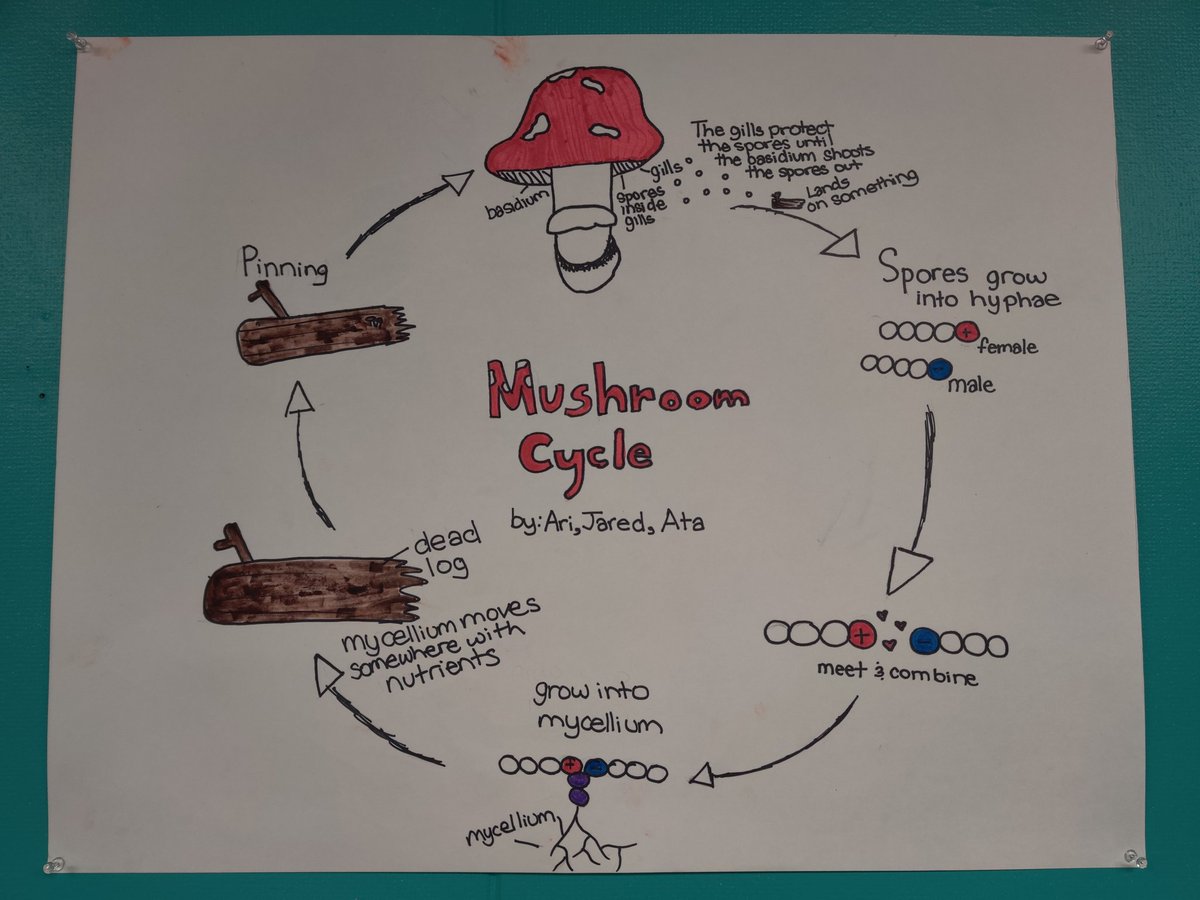 The gills protect
the spores until
the basidium shoots
the spores out
gills
basidium
spores
inside
gills
Lands
on something
Spores grow
into hyphae
+
female
-
male
+
-
meet & combine
grow into
mycellium
+
-
mycellium
mycellium moves
somewhere with
nutrients
dead
log
Pinning
Mushroom
Cycle
by: Ari, Jared, Ata